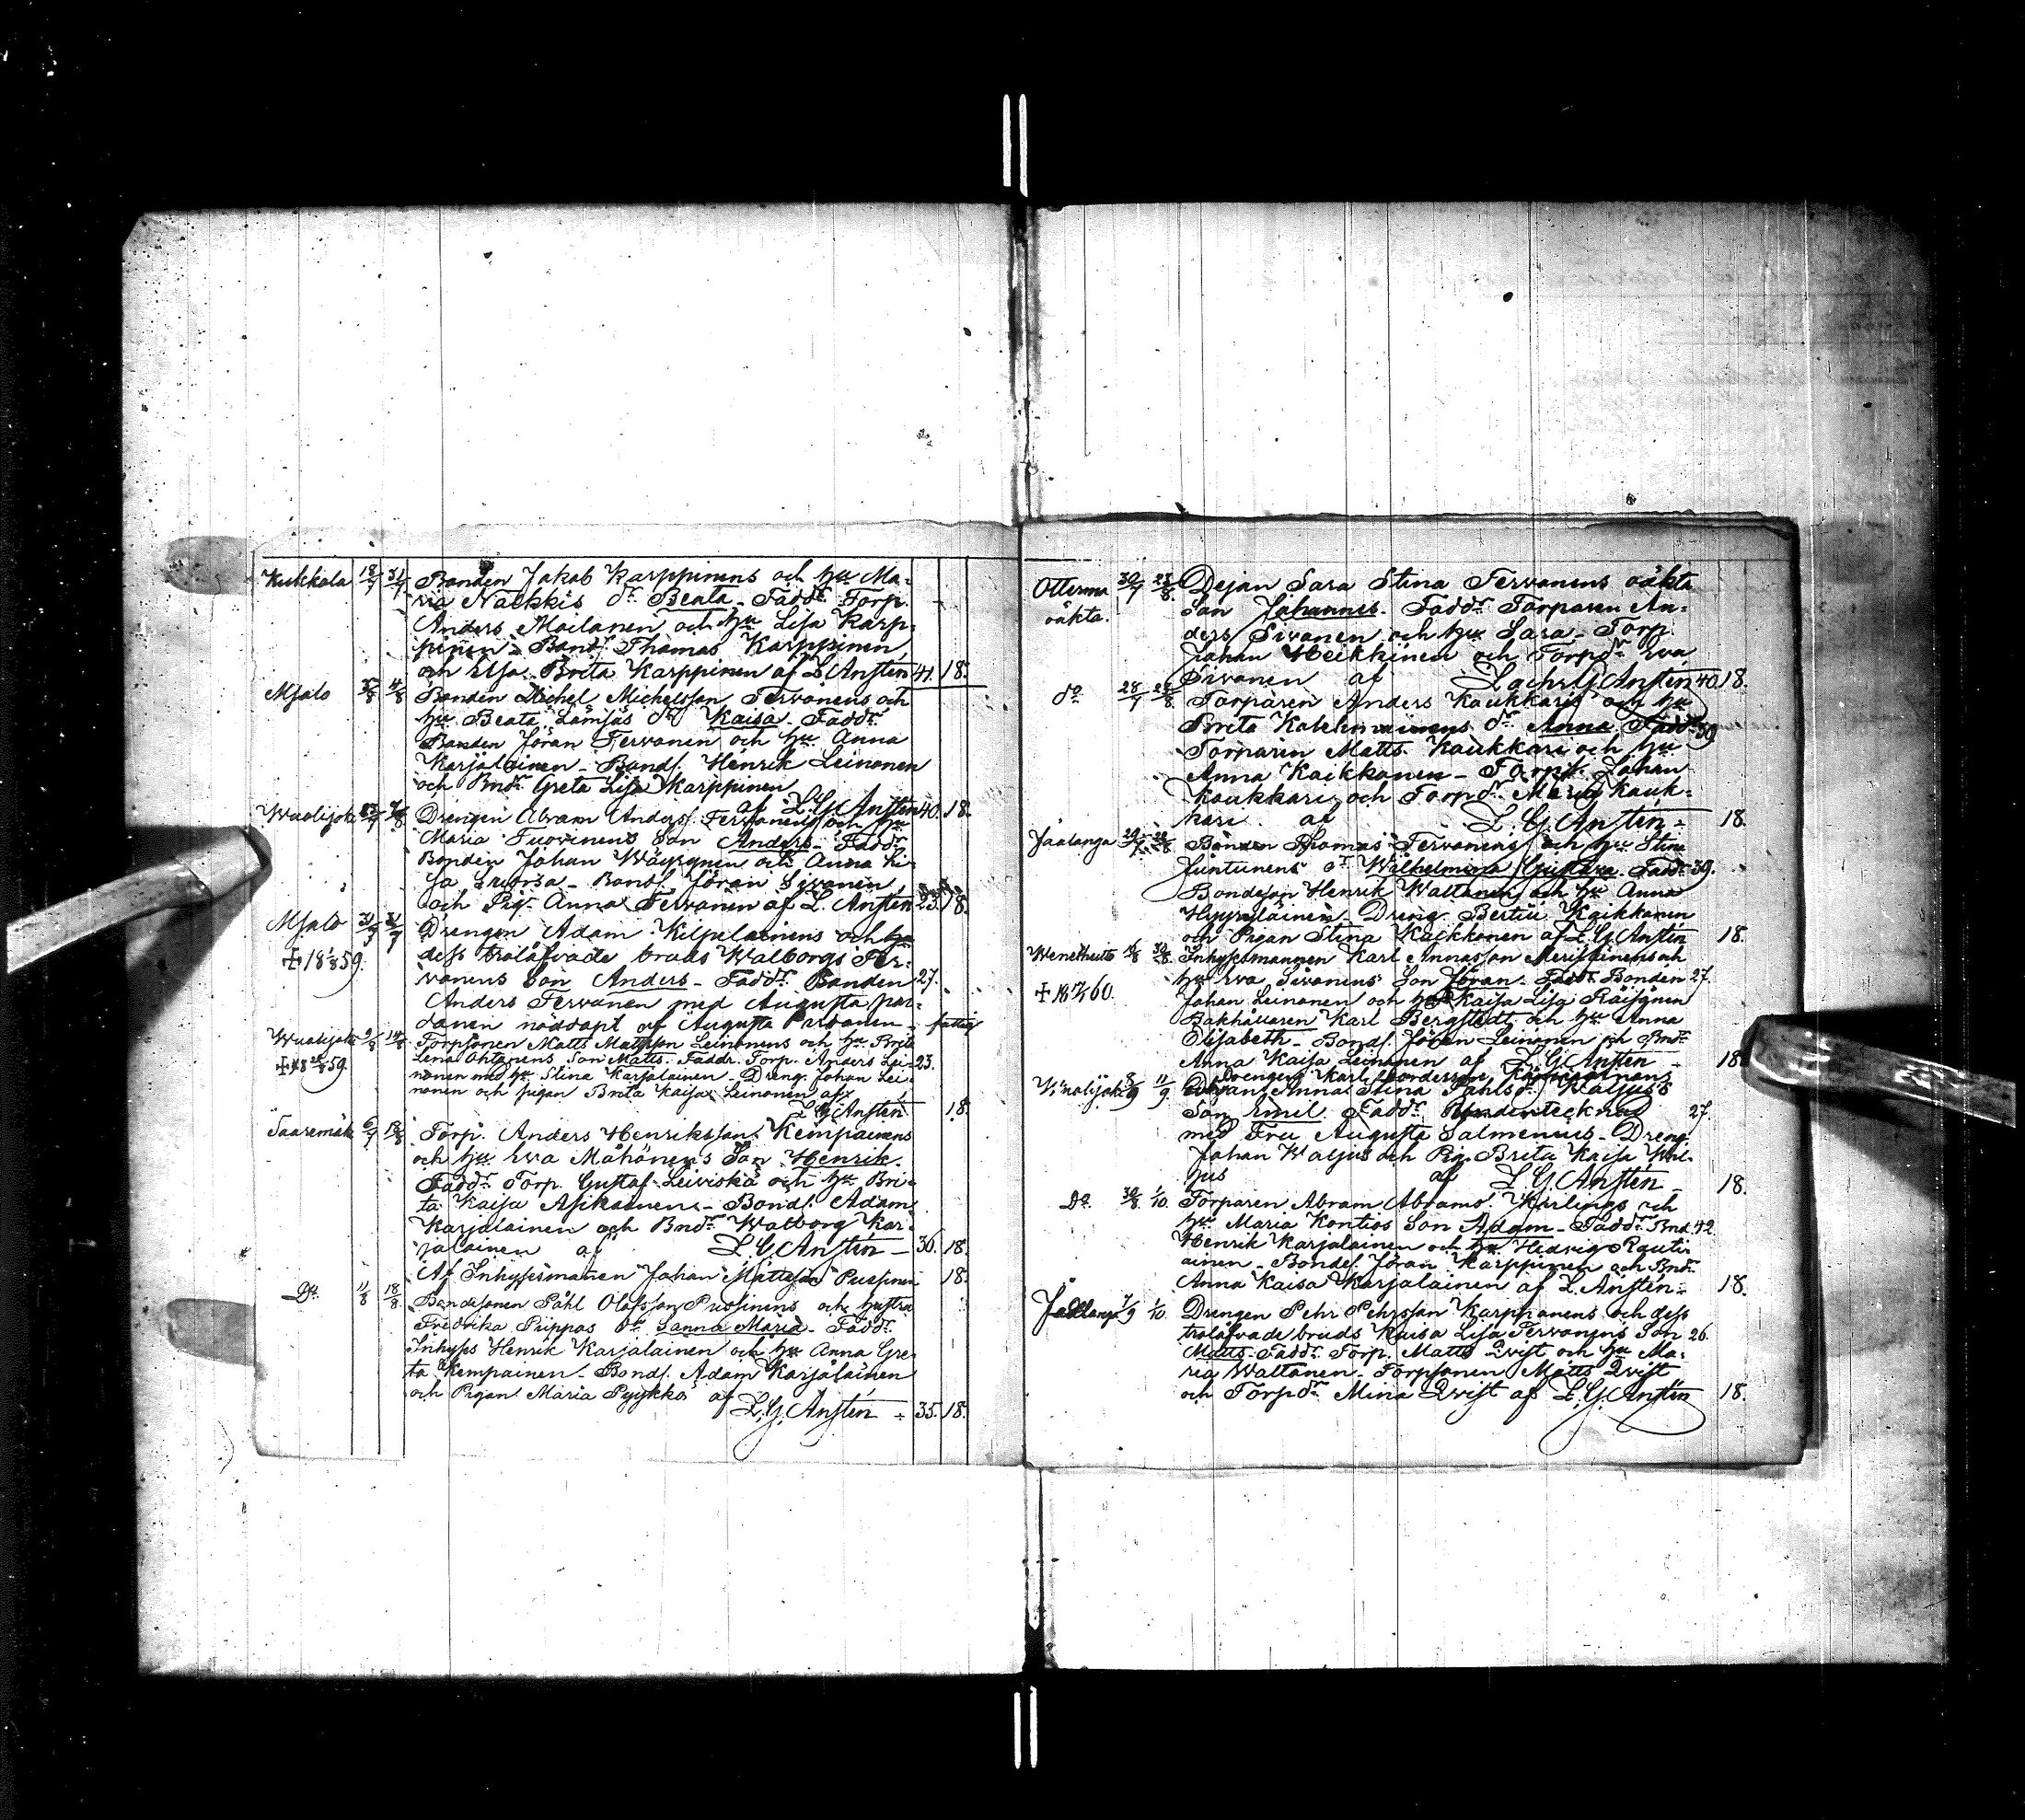 Kukkola 18/7 31/7 Bonden Jakob Karppinens och hu Ma-
ria Näckkis dr Beata - Faddr Torp.
Anders Moilanen och hu Lisa Karp-
pinen - Bonds. Thomas Karppinen
och Elsa Brita Karppinen af L Anstén 41. 18.
Mjalo 4/8 Bonden Michel Michelsson Tervonens och
hu Beata Lämsäs dr Kaisa - Faddr
Bonden Jöran Tervonen och hu Anna
Karjalainen - Bonds. Henrik Leinonen
och Bndr Greta Lisa Karppinen
af L.G. Anstén 40. 18.
Drengen Abram Anders. Tervonens och hu
Maria Tuovinens Son Anders - Faddr
Bonden Johan Wäyrynen och Anna Li-
sa - Bonds. Jöran Sivonen
och Pig. Anna Tervonen af L. Anstén 23. 18.
Mjalo 31/7 Drengen Adam Kilpeläinens och
dess trolåfvade bruds Walborgs Ter-
vonens Son Anders - Faddr Bonden 27.
Anders Tervonen med Augusta Par-
danen nöddöpt af Augusta fattig
Torpsonen Matts Mattsson Leinonens och hu Brita
Lena Ohtonens Son Matts. Faddr. Torp. Anders Lei- 23.
nonen med hu Stina Karjalainen - Dreng. Johan Lei-
nonen och pigan Brita Kaisa Leinonen af
L G Anstén 18.
Saaremäk 6/7 18/8 Torp. Anders Henriksson Kempainens
och hu Eva Mähönens Son Henrik.
Faddr Torp Gustaf Leiviskä och hu Bri-
ta Kaisa Asikainen - Bonds. Adam
Karjalainen och Bndr Walborg Kar-
jalainen af L.G. Anstén - 36. 18.
Af Inhysesmannen Johan Mattsson Pussinen 18.
Do 11/8 18/8 Bondesonen Påhl Olofsson Pussinens och hustru
Fredrika Piippos dr Sanna Maria - Faddr
Inhyss Henrik Karjalainen och hu Anna Gre-
ta Kempainen - Bonds. Adam Karjalainen
och Pigan Maria Pyykkö af
L.G. Anstén - 35. 18.
Otterma 30/7 23/8 Pejan Sara Stina Tervonens oäkta
oäkta. Son Johannes. Faddr Torparen An-
ders Sivonen och hu Sara - Torp.
Johan Heikkinen och Torpdr Eva
Sivonen af L G Anstén 40 18.
do 28/7 Torparen Anders Kaukkaris och hu
Brita dr Anna Faddr 39
Torparen Matts Kaukkari och hu
Anna Kaikkonen - Torps. Johan
Kaukkari och Torpdr Maria Kauk-
kari af L.G. Anstén - 18.
Jaalanga Bonden Thomas Tervonens och hu Stina
Juntunens dr Wilhelmina Gustava. Faddr 39.
Bondeson Henrik Waltanen och hu Anna
Hyyryläinen - Dreng. Bertil Kaikkonen
och Pigan Stina Kaikkonen af L.G. Anstén 18.
Inhysesmannen Karl Annasson Meriläinens och
hu Eva Sivonens Son Jöran - Faddr Bonden 27.
Johan Leinonen och hu Kaisa Lisa Räisänen
Bakhållaren Karl Bergstedt och hu Anna
Elisabeth - Bonds. Jöran Leinonen och Bndr
Anna Kaisa Leinonen af L.G. Anstén - 18
8/9 11/9 Pigan Anna Stina Påhlsdr Waljus's
Son Emil. Faddr Undertecknad 27.
med Fru Augusta Salmenius - Dreng
Johan Waljus och Pig. Brita Kaisa Wal-
jus af L.G. Anstén - 18.
Do 30/8 1/10. Torparen Abram Abrams. Keilings och
hu Maria Kontios Son Adam - Faddr Bnd. 42.
Henrik Karjalainen och hu Hedvig Rauti-
ainen - Bondes. Jöran Karppinen och Bndr
Anna Kaisa Karjalainen af L. Anstén - 18.
Jaalanga 7/9 1/10. Drengen Pehr Pehrsson Karppanens och dess
trolåfvade bruds Kaisa Lisa Tervonens Son 26.
Matts. Faddr Torp. Matts Qvist och hu Ma-
ria Waltanen - Torpsonen Matts Qvist
och Torpdr Mina Qvist af L.G. Anstén 18.